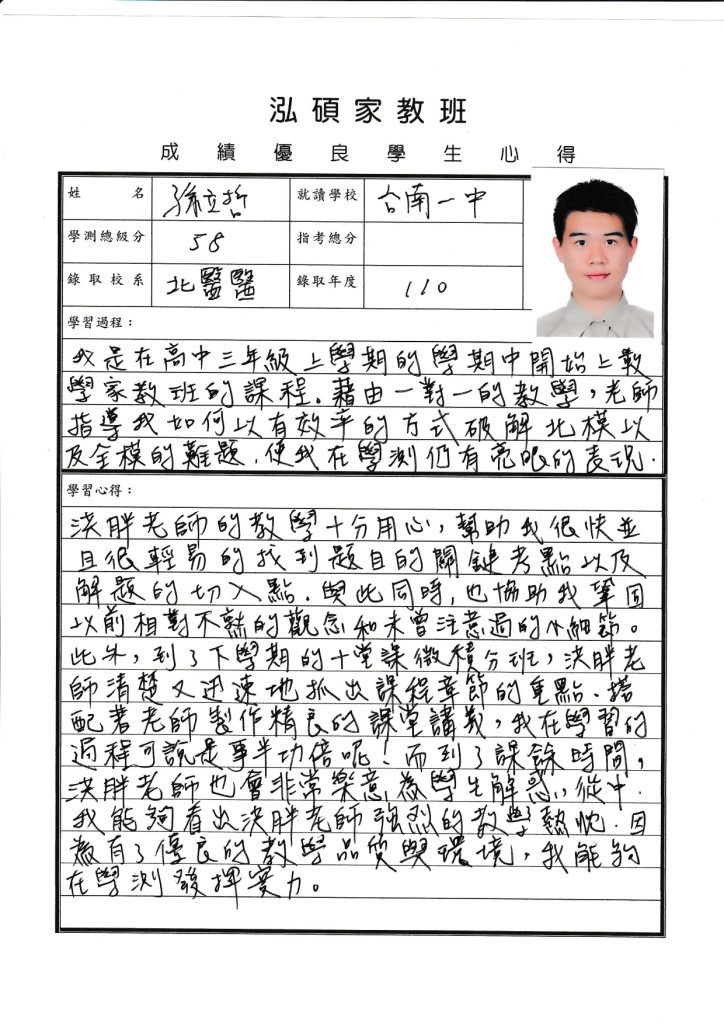 泓碩家教班
成績優良學生心得
姓名 孫立哲 就讀學校 台南一中
學測總級分 58 指考總分
錄取校系 北醫醫 錄取年度 110
學習過程：
我是在高中三年級上學期的學期中開始上數
學家教班的課程。藉由一對一的教學，老師
指導我如何以有效率的方式破解北模以
及全模的難題，使我在學測仍有亮眼的表現.
學習心得：
洪胖老師的教學十分用心，幫助我很快並
且很輕易的找到題目的關鍵考點以及
解題的切入點.與此同時，也協助我鞏固
以前相對不熟的觀念和未曾注意過的小細節。
此外，到了下學期的十堂課微積分班，洪胖老
師清楚又迅速地抓出課程章節的重點.搭
配著老師製作精良的課堂講義，我在學習的
過程可說是事半功倍呢！而到了課餘時間，
洪胖老師也會非常樂意為學生解惑，從中
我能夠看出洪胖老師強烈的教學熱忱.因
為有了優良的教學品質與環境，我能夠
在學測發揮實力。